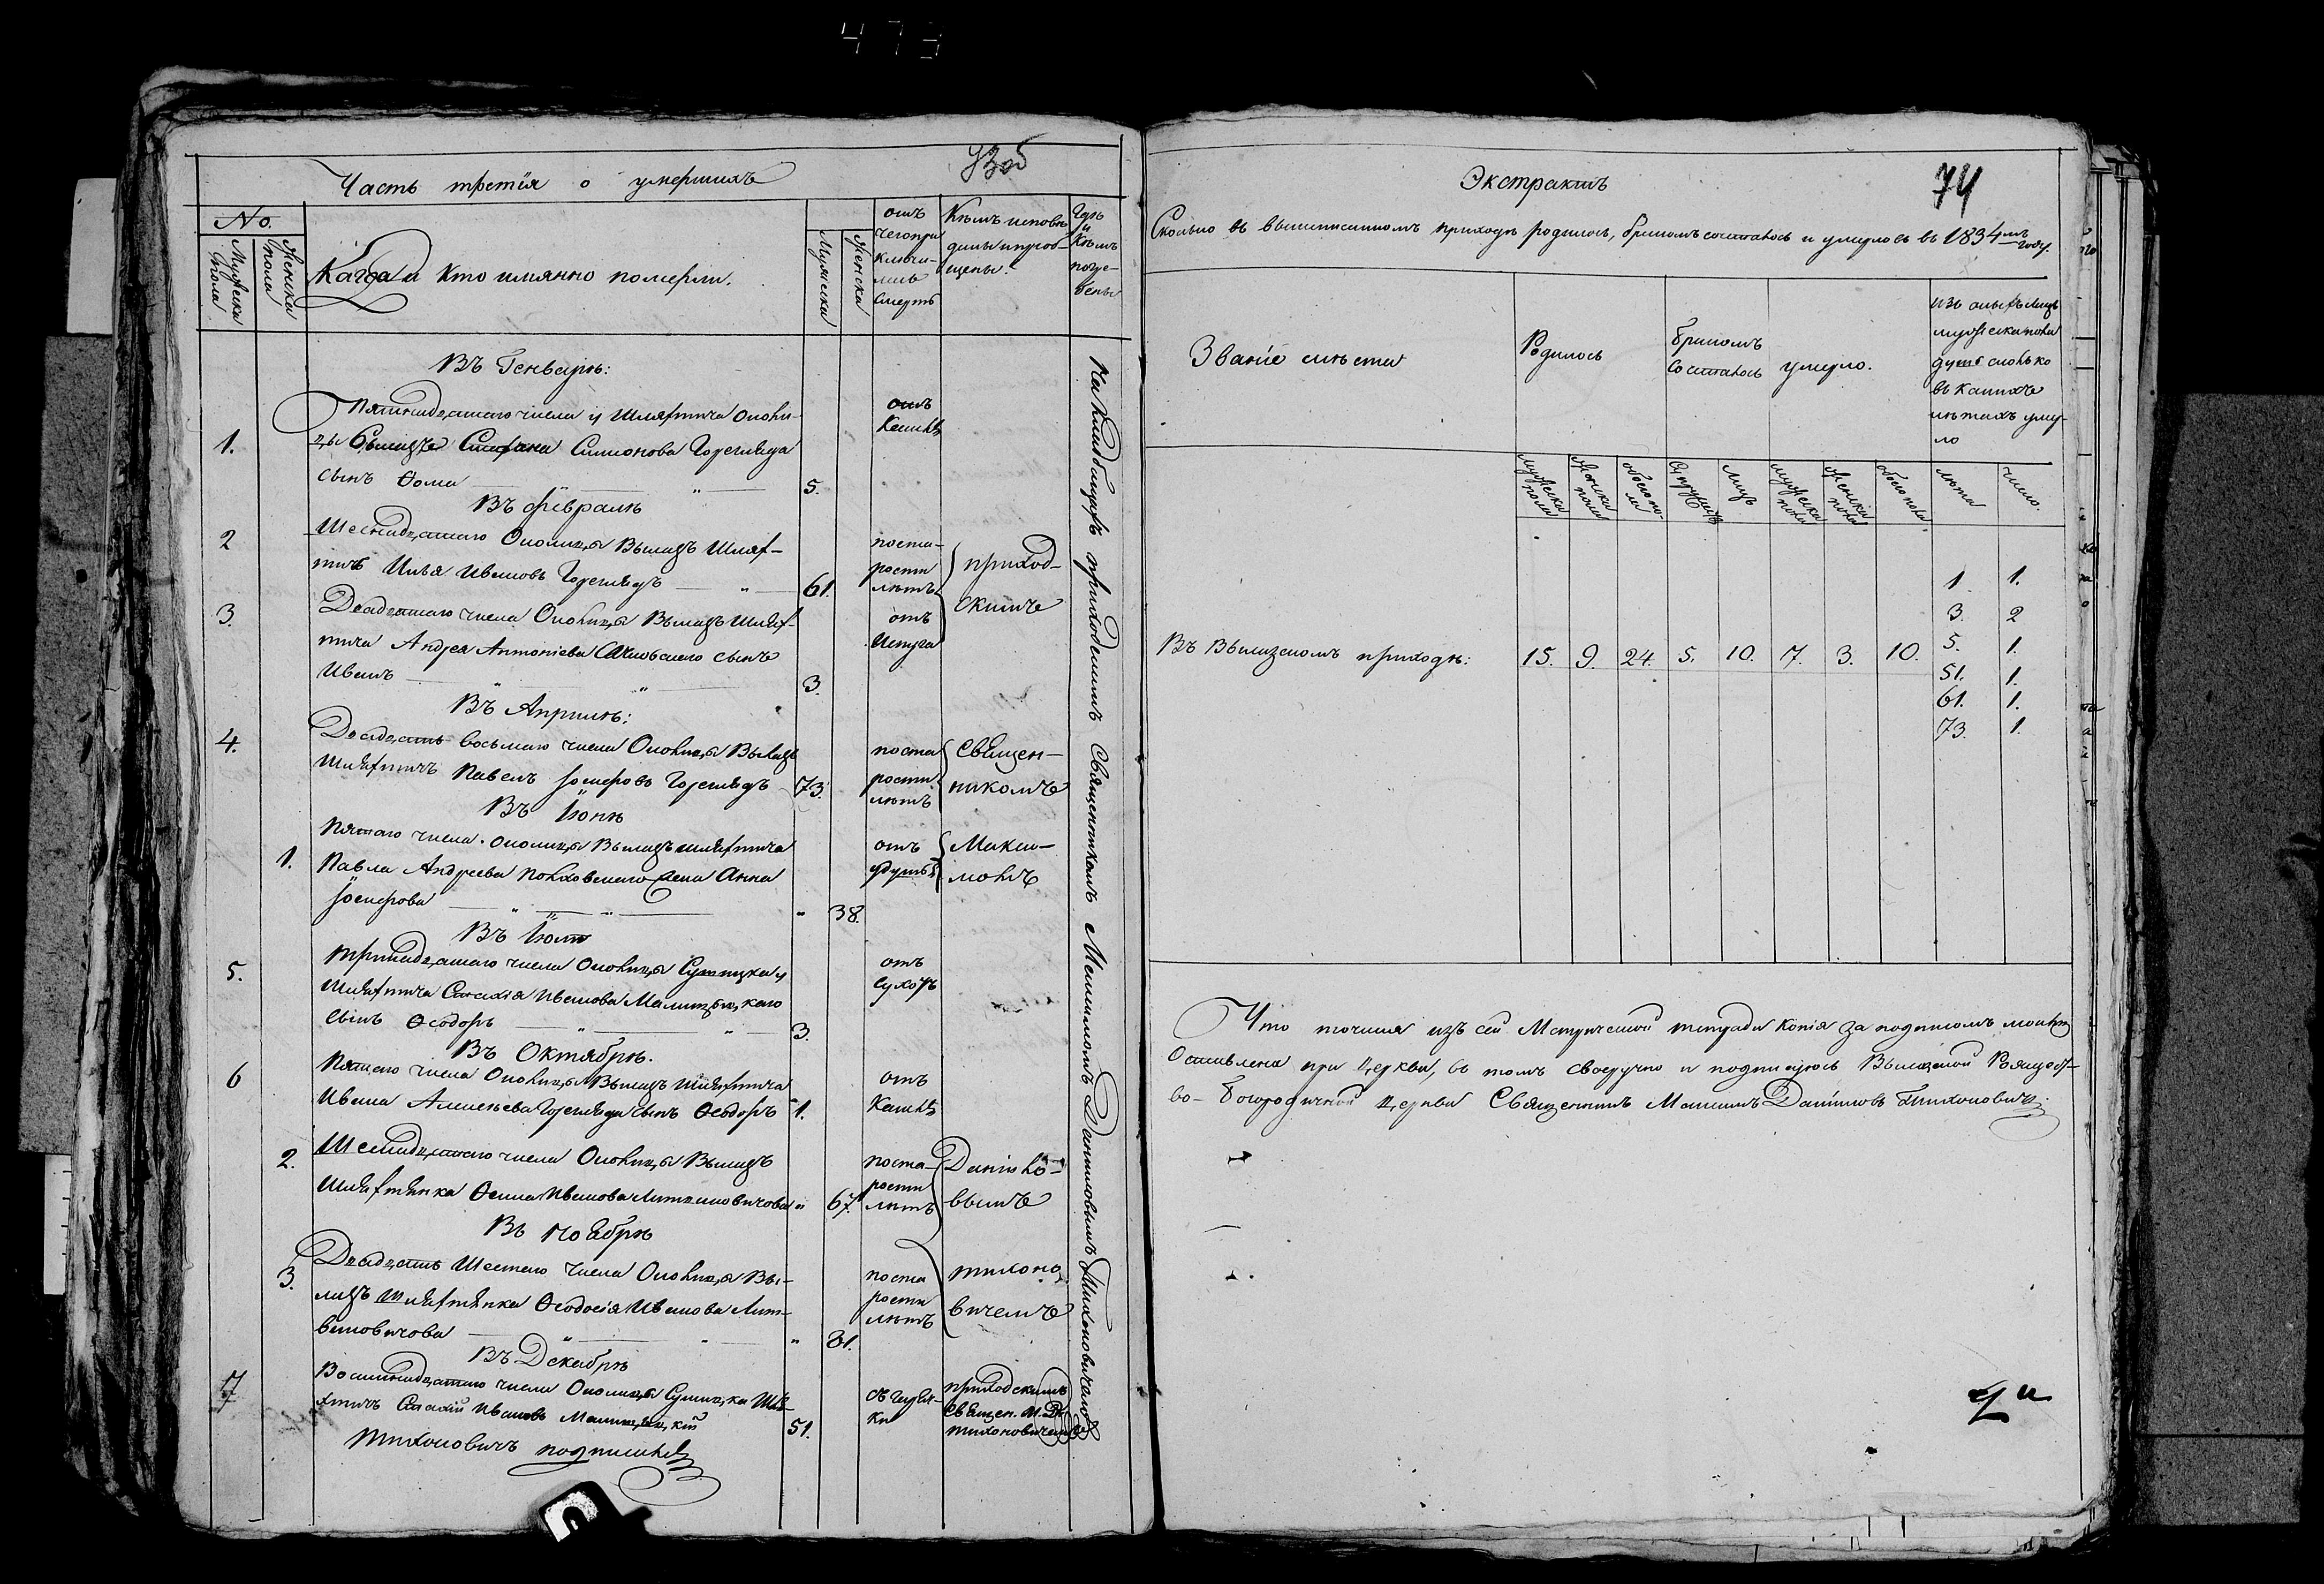 473
Часть третïя о умершихъ
73об
No.
Мужеска пола
Женска пола
Когда и кто имянно померли.
Мужска
Женска
отъ чего приключилась смерть
Кѣмъ исповѣданы и пріобщены.
Гдѣ и Кѣмъ погребены
Въ Генварѣ:
1.
Пятнадцатаго числа у Шляхтича Околи-
цы Вылазъ Симионова Горегляда
сынъ Ѳома
5.
отъ
Кашля
Въ февралѣ
2
Шеснадцатаго Околицы Вылазъ Шлях-
тичь Илья Ивановъ Гореглядъ
61.
поста-
рости
лѣтъ
приход-
скимъ
3.
Двадцатаго числа Околицы Вылазъ Шлях-
тича Андрея Антонiева сынъ
Иванъ
3.
отъ
Испуга
Въ Априлѣ:
4.
Двадцать восьмаго числа Околицы Вылазъ
Шляхтичъ Павелъ Іосифовъ Гореглядъ
73.
поста
рости
лѣтъ
Священ-
никомъ
Въ Іюнѣ
1.
Пятаго числа. околицы Вылазъ шляхтича
Павла Андреева жена Анна
Іосифова
38.
отъ
Макси-
момъ
Въ Іюлѣ
5.
Тринадцатаго числа Околицы у
Шляхтича Иванова
сынъ Ѳеодоръ
3.
отъ
Сухотъ
Въ Октябрѣ.
6
Пятаго числа Околицы Вылазъ шляхтича
Ивана Алексѣева Горегляда сынъ Ѳеодоръ
1.
отъ
Кашля
2.
Шеснадцатаго числа Околицы Вылазъ
Шляхтянка Ивановa Литвиновичова
67.
поста-
рости
лѣтъ
Данило-
вымъ
Въ Ноябрѣ
3.
Двадцать Шестаго числа Околицы Вы-
лазъ Шляхтянка Ѳеодосiя Иванова Лит-
виновичова
81.
поста
рости
лѣтъ
тихоно
вичемъ
Въ Декабрѣ
7
Восемнадцатаго числа Околицы Шля-
хтичъ Ивановъ
51.
съ горяч-
ки
приходскимъ
Священ. М. Д.
тихоновичемъ
Тихоновичъ подписался
На Кладбищѣ приходскимъ Священникомъ Максимомъ Даниловымъ Тихоновичемъ
Экстрактъ
74
Сколько въ вышеписанномъ приходѣ родилось, бракомъ состалось и умерло въ 1834мъ году.
Званïе мѣста
Родилось
бракомъ
Состалось
умерло.
изъ оныхъ лицъ
мужеска пола
душъ сколько
въ какихъ
лѣтахъ умер-
ло
мужеска пола
женска пола
обоего пола
Супружествъ
Лицъ
мужеска пола
женска пола
обоего пола
лѣта
число.
Въ Вылазскомъ приходѣ:
15.
9.
24.
5.
10.
7.
3.
10.
1. 1.
3. 2
5. 1.
51. 1.
61. 1.
73. 1.
Что точная изъ сей Метрической тетради копïя за подписомъ моимъ
Оставлена при Церкви, въ томъ своеручно и подписуюсь Вылазской Рождест-
во-Богородичной Церкви Священникъ Максимъ Даниловъ Тихоновичъ.